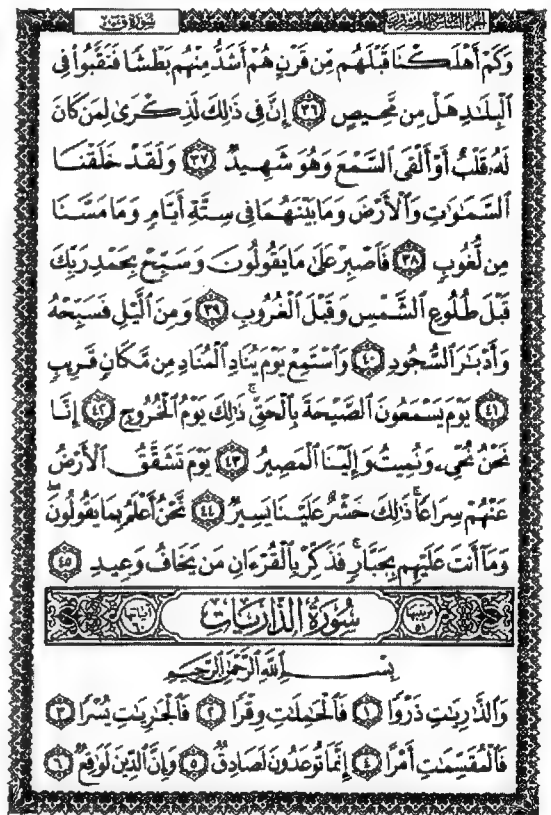 سُورَةُ قٓ
الجزء السادس والعشرون
وَكَمْ أَهْلَكْنَا قَبْلَهُم مِّن قَرْنٍ هُمْ أَشَدُّ مِنْهُم بَطْشًا فَنَقَّبُوا۟ فِى
ٱلْبِلَٰدِ هَلْ مِن مَّحِيصٍ ٣٦ إِنَّ فِى ذَٰلِكَ لَذِكْرَىٰ لِمَن كَانَ
لَهُۥ قَلْبٌ أَوْ أَلْقَى ٱلسَّمْعَ وَهُوَ شَهِيدٌ ٣٧ وَلَقَدْ خَلَقْنَا
ٱلسَّمَٰوَٰتِ وَٱلْأَرْضَ وَمَا بَيْنَهُمَا فِى سِتَّةِ أَيَّامٍ وَمَا مَسَّنَا
مِن لُّغُوبٍ ٣٨ فَٱصْبِرْ عَلَىٰ مَا يَقُولُونَ وَسَبِّحْ بِحَمْدِ رَبِّكَ
قَبْلَ طُلُوعِ ٱلشَّمْسِ وَقَبْلَ ٱلْغُرُوبِ ٣٩ وَمِنَ ٱلَّيْلِ فَسَبِّحْهُ
وَأَدْبَٰرَ ٱلسُّجُودِ ٤٠ وَٱسْتَمِعْ يَوْمَ يُنَادِ ٱلْمُنَادِ مِن مَّكَانٍ قَرِيبٍ
٤١ يَوْمَ يَسْمَعُونَ ٱلصَّيْحَةَ بِٱلْحَقِّ ۚ ذَٰلِكَ يَوْمُ ٱلْخُرُوجِ ٤٢ إِنَّا
نَحْنُ نُحْىِۦ وَنُمِيتُ وَإِلَيْنَا ٱلْمَصِيرُ ٤٣ يَوْمَ تَشَقَّقُ ٱلْأَرْضُ
عَنْهُمْ سِرَاعًا ۚ ذَٰلِكَ حَشْرٌ عَلَيْنَا يَسِيرٌ ٤٤ نَّحْنُ أَعْلَمُ بِمَا يَقُولُونَ ۖ
وَمَآ أَنتَ عَلَيْهِم بِجَبَّارٍ ۖ فَذَكِّرْ بِٱلْقُرْءَانِ مَن يَخَافُ وَعِيدِ ٤٥
ترتيبها ٥١ سُورَةُ الذَّارِيَاتِ آياتها ٦٠
بِسْمِ ٱللَّهِ ٱلرَّحْمَٰنِ ٱلرَّحِيمِ
وَٱلذَّٰرِيَٰتِ ذَرْوًا ١ فَٱلْحَٰمِلَٰتِ وِقْرًا ٢ فَٱلْجَٰرِيَٰتِ يُسْرًا ٣
فَٱلْمُقَسِّمَٰتِ أَمْرًا ٤ إِنَّمَا تُوعَدُونَ لَصَادِقٌ ٥ وَإِنَّ ٱلدِّينَ لَوَٰقِعٌ ٦